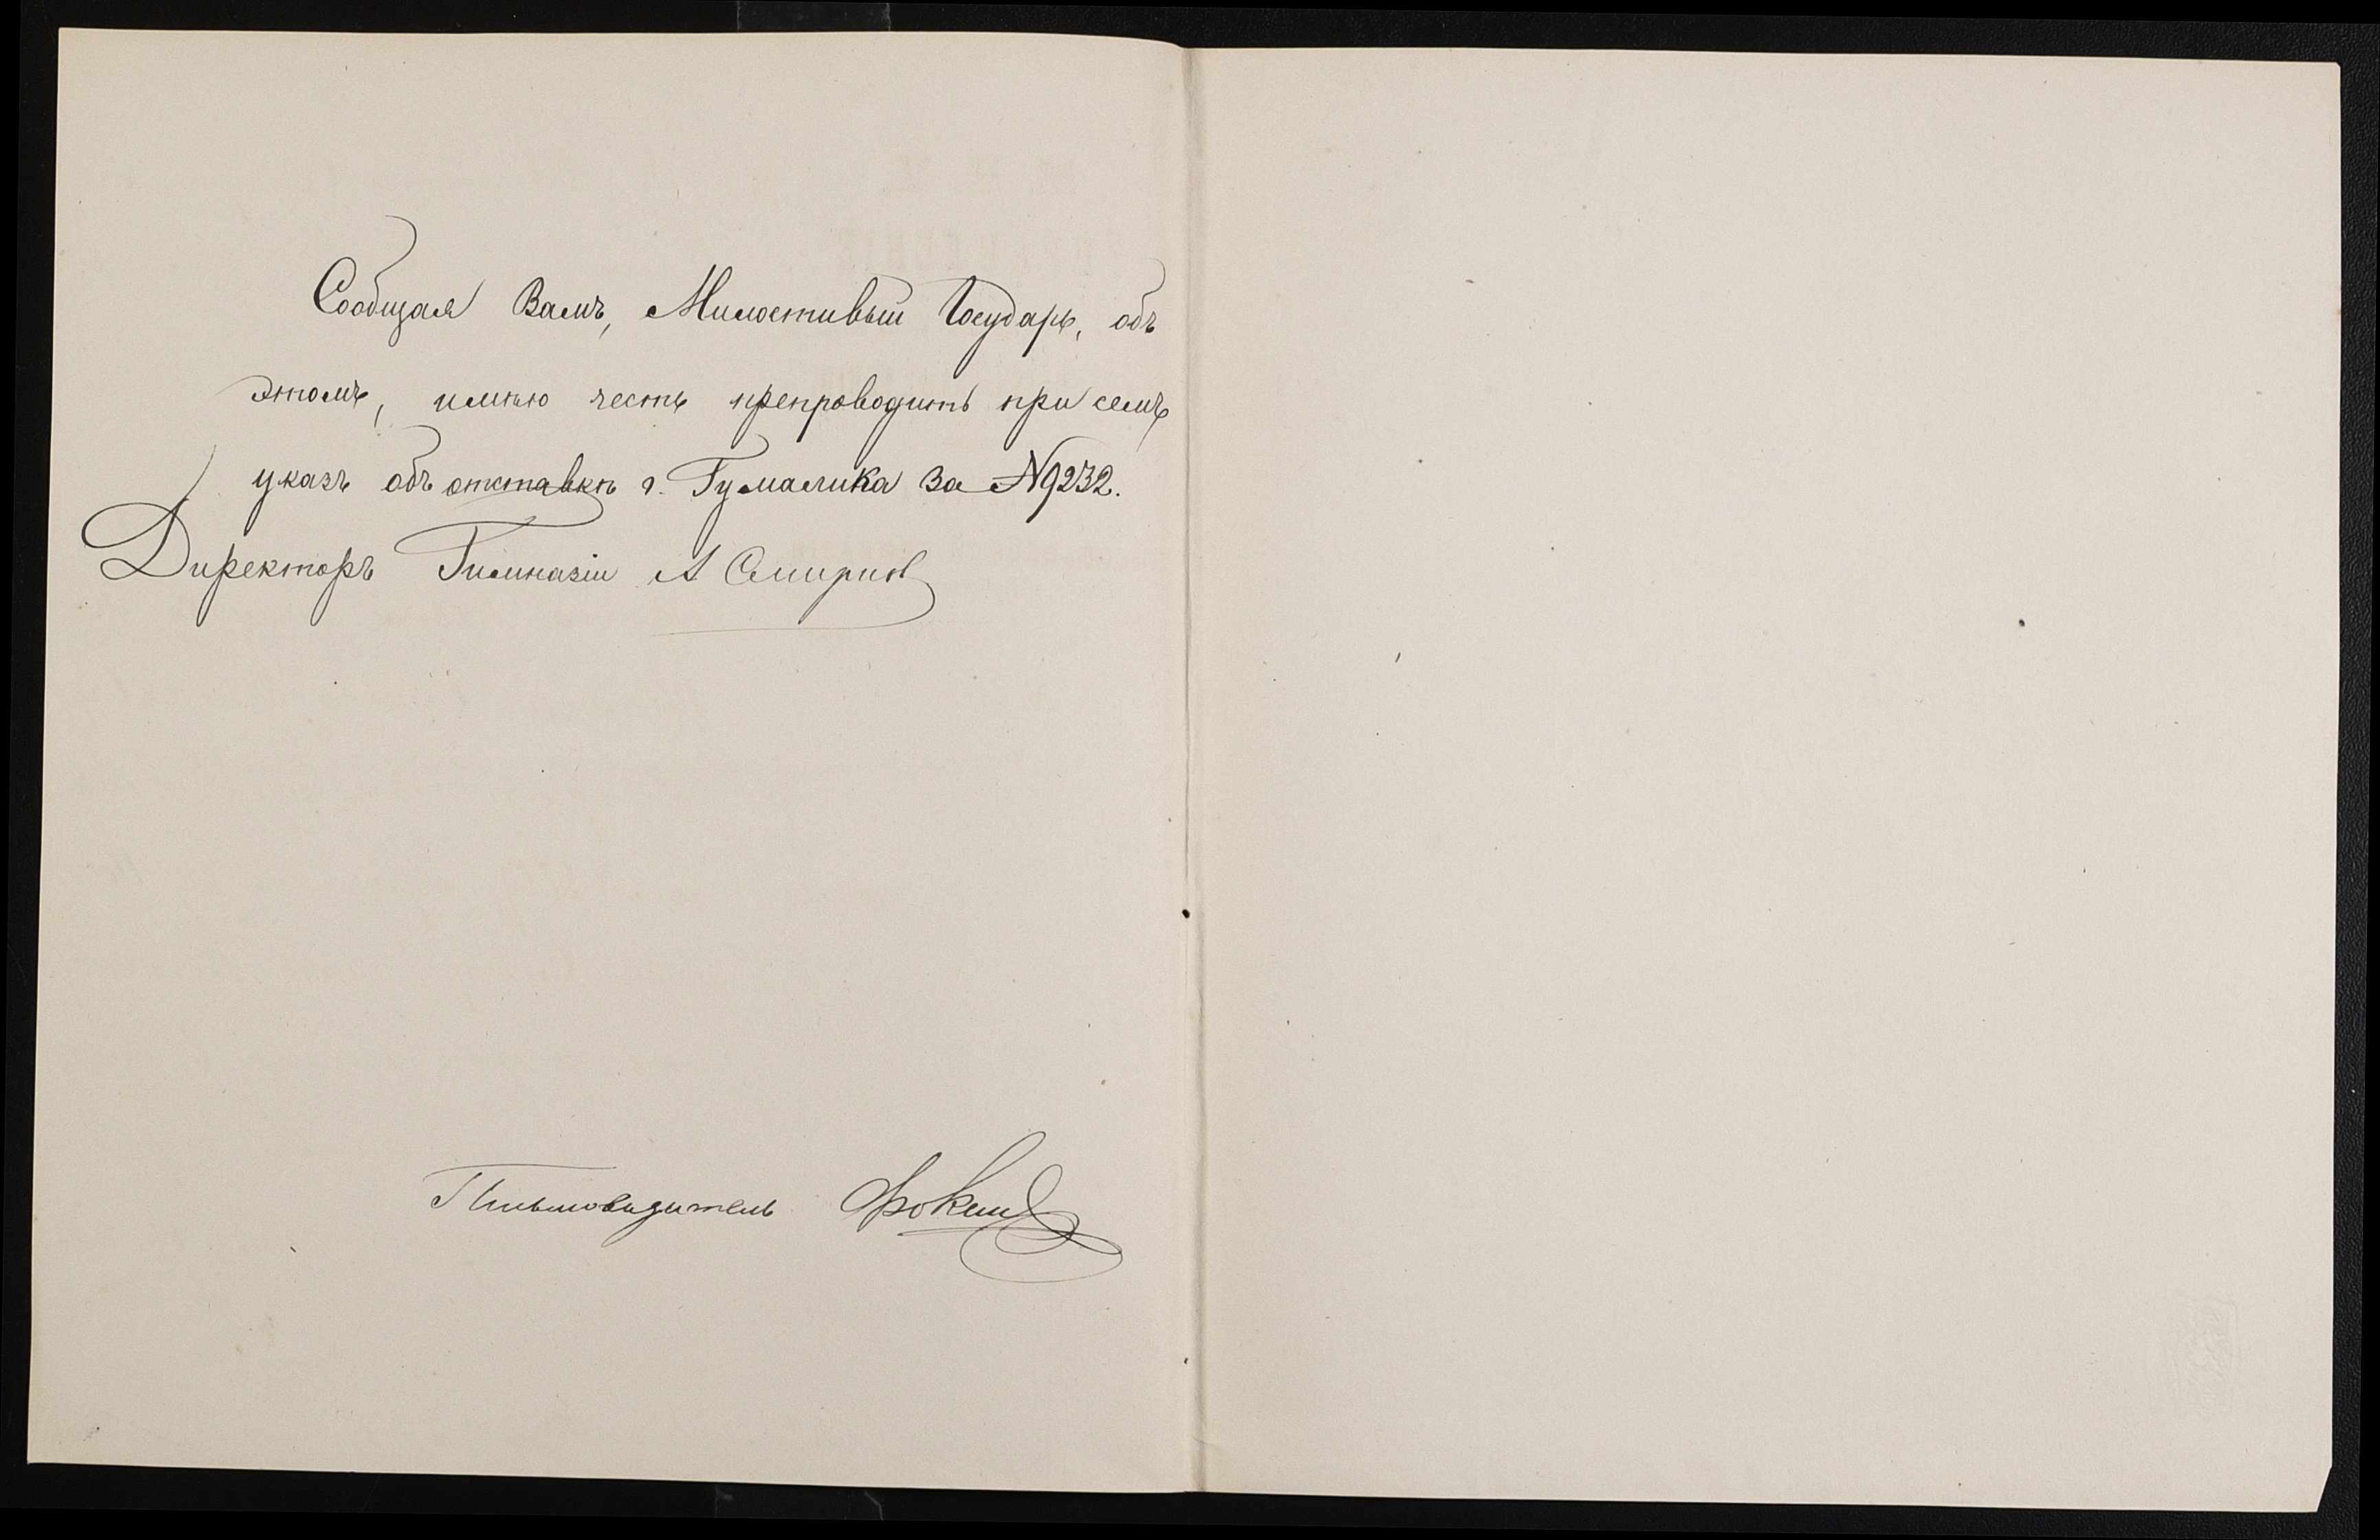 Сообщая Вамъ, Милостивый Государь, объ
этомъ, имѣю честь препроводить при семъ
указъ объ отставкѣ г. Гумалика за №9232.
Директоръ Гимназіи А Смирнов
Письмоводитель Фокинъ